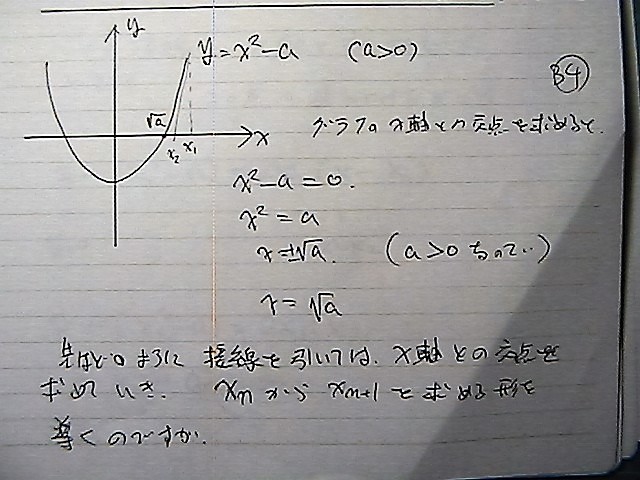 y
y = x² - a (a>0)
B4
√a
x
x₂ x₁
グラフの x軸との交点を求めると、
x² - a = 0.
x² = a
x = ±√a. (a>0 なので)
x = √a
先ほどのように 接線を引いては、x軸との交点を
求めていき、 xₙ から xₙ₊₁ を求める形を
導くのですが、